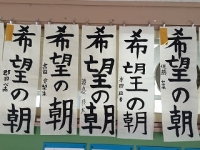 希望の朝
希望の朝
希望の朝
希望の朝
希望の朝